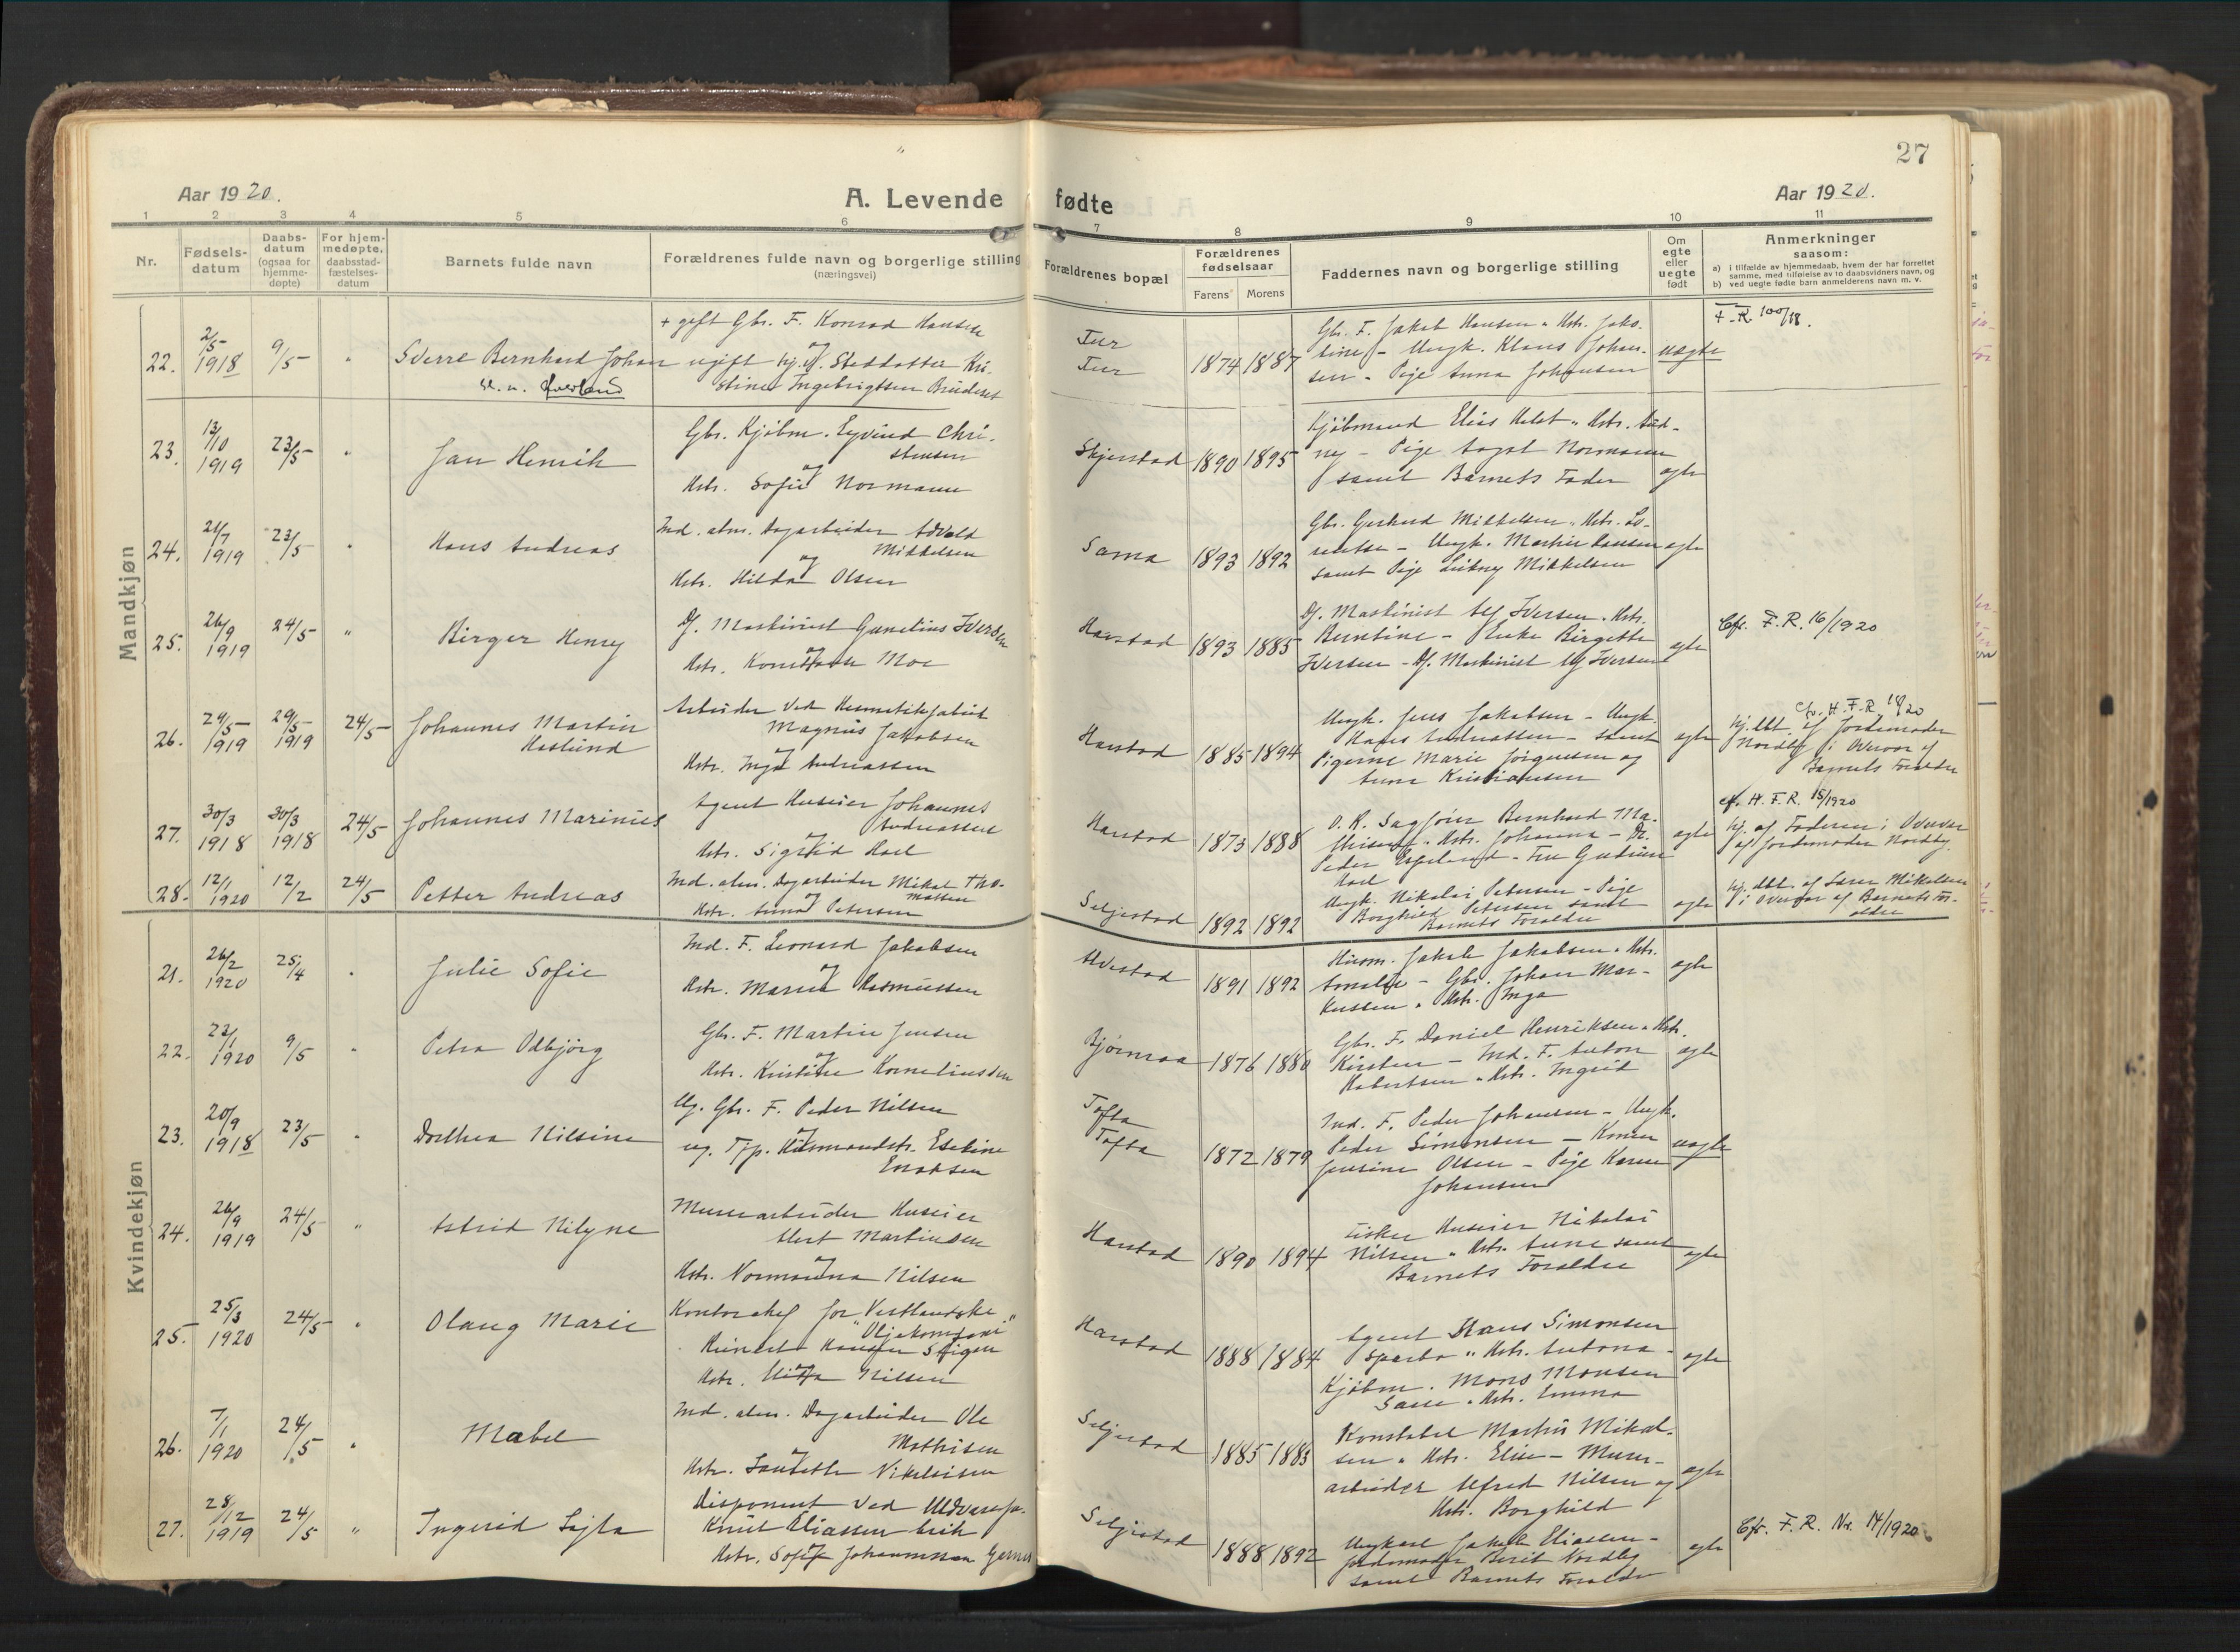 27
Aar 1920.
A. Levende fødte
Aar 1920.
1 2 3 4 5 6 7 8 9 10 11
Nr.
Fødselsdatum
Daabsdatum (ogsaa for hjemmedøpte)
For hjemmedøpte, daabsstadfæstelsesdatum
Barnets fulde navn
Forældrenes fulde navn og borgerlige stilling
(næringsvei)
Forældrenes bopæl
Forældrenes fødselsaar
Farens Morens
Faddernes navn og borgerlige stilling
Om egte eller uegte født
Anmerkninger saasom:
a) i tilfælde av hjemmedaab, hvem der har forrettet samme, med tilføielse av to daabsvidners navn, og
b) ved uegte fødte barn anmelderens navn m. v.
Mandkjøn
22. 2/5 1918 9/5 " Sverre Bernhard Johan
+ gift Gbr. F. Konrad Hansen
og
ugift hj.v. Steddatter Kristine Ingebrigtsen
1874 1887
Gbr. F. Jakob Hansen " Hstr. Jakobine - Ungk. Klaus Johansen - Pige Anna Johansen
uegte
F.R. 100/18.
23. 13/10 1919 23/5 " Jan Henrik
Gbr. Kjøbm. Eyvind Christensen
og
Hstr. Sofie Normann
Skjerstad 1890 1895
Kjøbmand Elias " Hstr. - Pige Normann samt Barnets Fader
egte
24. 21/7 1919 23/5 " Hans Andreas
Ind. alm. Dagarbeider Advald Mikkelsen
og
Hstr. Hilda Olsen
Sama 1893 1892
Gbr. Gerhard Mikkelsen " Hstr. Lorentse - Ungk. Martin Hansen samt Pige Mikkelsen
egte
25. 26/9 1919 24/5 " Birger Henry
Df. Maskinist Iversen
og
Hstr. Moe
Harstad 1893 1885
Df. Maskinist Alf Iversen " Hstr. Berntine - Enke Birgitte Iversen - Df. Maskinist Alf Iversen
egte
Cfr. F.R. 16/1920
26. 24/5 1919 29/5 1919 24/5 Johannes Martin Haslund
Arbeider ved Hermetikfabrik
Magnus Jakobsen
og
Hstr. Inga Andreassen
Harstad 1885 1894
Ungk. Jens Jakobsen - Ungk. Hans Andreassen - samt Pigerne Marie Jørgensen og Anna Kristiansen
egte
cfr. H.F.R. /20
hj.dbt. af Jordemoder Nordby i Overvær af Barnets Forældre
27. 30/3 1918 30/3 1918 24/5 Johannes Marinius
Agent Huseier Johannes Andreassen
og
Hstr. Sigrid
Harstad 1873 1888
O.R. Sagfører Bernhard Mathisen " Hstr. Johanna - Dr. Peder - Fru Gudrun
egte
cf. H.F.R. 15/1920
hj. af Faderen i Overvær af Jordemoder Nordby.
28. 12/1 1920 12/2 24/5 Petter Andreas
Ind. alm. Dagarbeider Mikal Thomassen
og
Hstr. Anna Petersen
Seljestad 1892 1892
Ungk. Nikolai Petersen - Pige Borghild Petersen samt Barnets Forældre
egte
hj. dbt. af Mikelsen i Overvær af Barnets Forældre
Kvindekjøn
21. 26/2 1920 25/4 " Julie Sofie
Ind. F. Leonard Jakobsen
og
Hstr. Marie Rasmussen
1891 1892
Husm. Jakob Jakobsen " Hstr. - Gbr. Johan Markussen " Hstr. Inga
egte
22. 23/1 1920 9/5 " Petra Odbjørg
Gbr. F. Martin Jensen
og
Hstr. Kristine Korneliussen
Bjørnraa 1876 1880
Gbr. F. Daniel Henriksen " Hstr. Kirsten - Ind. F. Anton " Hstr. Ingrid
egte
23. 20/9 1918 23/5 " Dorthea Nilsine
Ug. Gbr. F. Peder Nilsen
og
ug. Tjp. Husmandsdtr. Esekine Enoksen
Tofta
Tofta
1872 1879
Ind. F. Peder Johansen - Ungk. Peder Simonsen - Konen Jensine Olsen - Pige Karen Johansen
uegte
24. 26/9 1919 24/5 " Astrid
Murerarbeider Huseier
Martinsen
og
Hstr. Normanna Nilsen
Harstad 1890 1894
Fisker Huseier Nikolai Nilsen " Hstr. Anne samt Barnets Forældre
egte
25. 25/3 1920 24/5 " Olaug Marie
Kontorchef for "Vestlandske Oljekompani"
Hansen
og
Hstr. Nilsen
Harstad 1888 1884
Agent Hans Simonsen Sparbo " Hstr. Antona - Kjøbm. Mons Monsen " Hstr. Emma
egte
26. 7/1 1920 24/5 " Mabel
Ind. alm. Dagarbeider Ole Mathisen
og
Hstr. Nikolaisen
Seljestad 1885 1883
Konstabel Martin Mikalsen " Hstr. Elise - Murerarbeider Alfred Nilsen og Hstr. Borghild
egte
27. 28/12 1919 24/5 " Ingerid
Disponent ved Uldvarefabrik
Knut Eliassen
og
Hstr. Sofie Johannessen
Seljestad 1888 1892
Ungkarl Jakob Eliassen - Jordemoder Berit Nordby samt Barnets Forældre
egte
Cfr. F.R. Nr. 14/1920